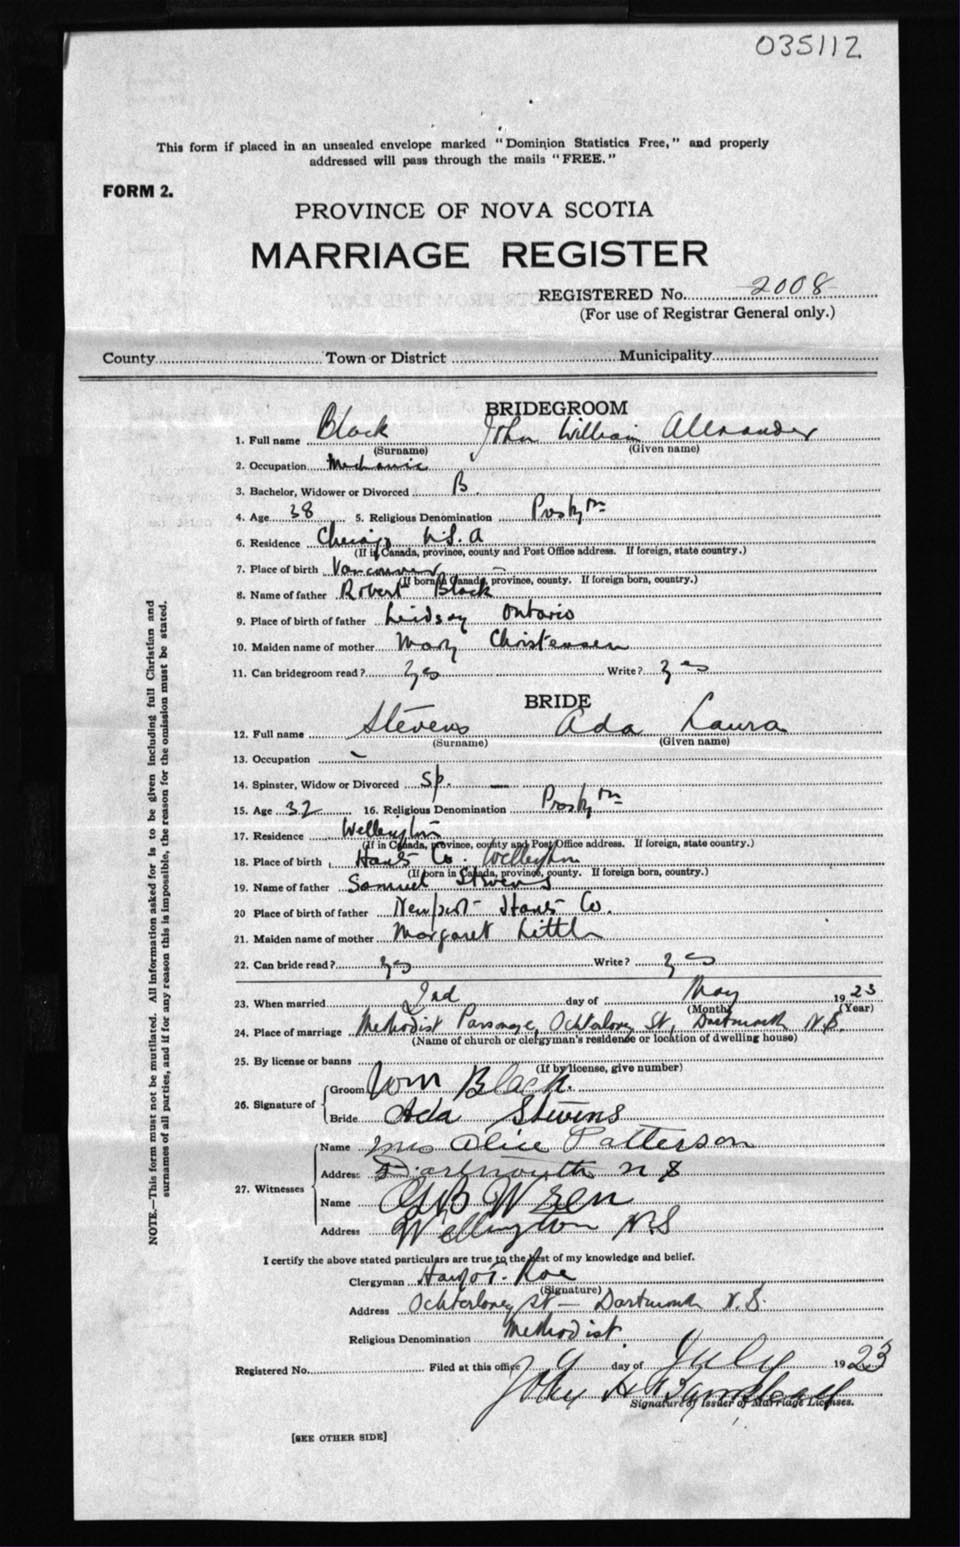 035112
This form if placed in an unsealed envelope marked "Dominion Statistics Free," and properly
addressed will pass through the mails "FREE."
FORM 2.
PROVINCE OF NOVA SCOTIA
MARRIAGE REGISTER
REGISTERED No. 2008
(For use of Registrar General only.)
County Town or District Municipality
BRIDEGROOM
1. Full name Black John William Alexander
(Surname) (Given name)
2. Occupation Mechanic
3. Bachelor, Widower or Divorced B.
4. Age 38 5. Religious Denomination Presbytn
6. Residence Chicago U.S.A
(If in Canada, province, county and Post Office address. If foreign, state country.)
7. Place of birth Vancouver
(If born in Canada, province, county. If foreign born, country.)
8. Name of father Robert Black
9. Place of birth of father Lindsay Ontario
10. Maiden name of mother Mary Christensen
11. Can bridegroom read? yes Write? yes
BRIDE
12. Full name Stevens Ada Laura
(Surname) (Given name)
13. Occupation –
14. Spinster, Widow or Divorced Sp. –
15. Age 32 16. Religious Denomination Presbytn
17. Residence Wellington
(If in Canada, province, county and Post Office address. If foreign, state country.)
18. Place of birth Hants Co. Wellington
(If born in Canada, province, county. If foreign born, country.)
19. Name of father Samuel Stevens
20 Place of birth of father Newport Hants Co.
21. Maiden name of mother Margaret Little
22. Can bride read? yes Write? yes
23. When married 2nd day of May 1923
(Month) (Year)
24. Place of marriage Methodist Parsonage, Ochterloney St, Dartmouth N.S.
(Name of church or clergyman's residence or location of dwelling house)
25. By license or banns
(If by license, give number)
26. Signature of Groom Wm Black.
Bride Ada Stevens
27. Witnesses Name Mrs Alice Patterson
Address Dartmouth N S
Name
Address Wellington N.S
I certify the above stated particulars are true to the best of my knowledge and belief.
Clergyman Roe
(Signature)
Address Ochterloney St – Dartmouth N.S.
Religious Denomination Methodist
Registered No. Filed at this office 9 day of July 1923
John H
Signature of Issuer of Marriage Licenses.
[SEE OTHER SIDE]
NOTE.—This form must not be mutilated. All information asked for is to be given including full Christian and
surnames of all parties, and if for any reason this is impossible, the reason for the omission must be stated.